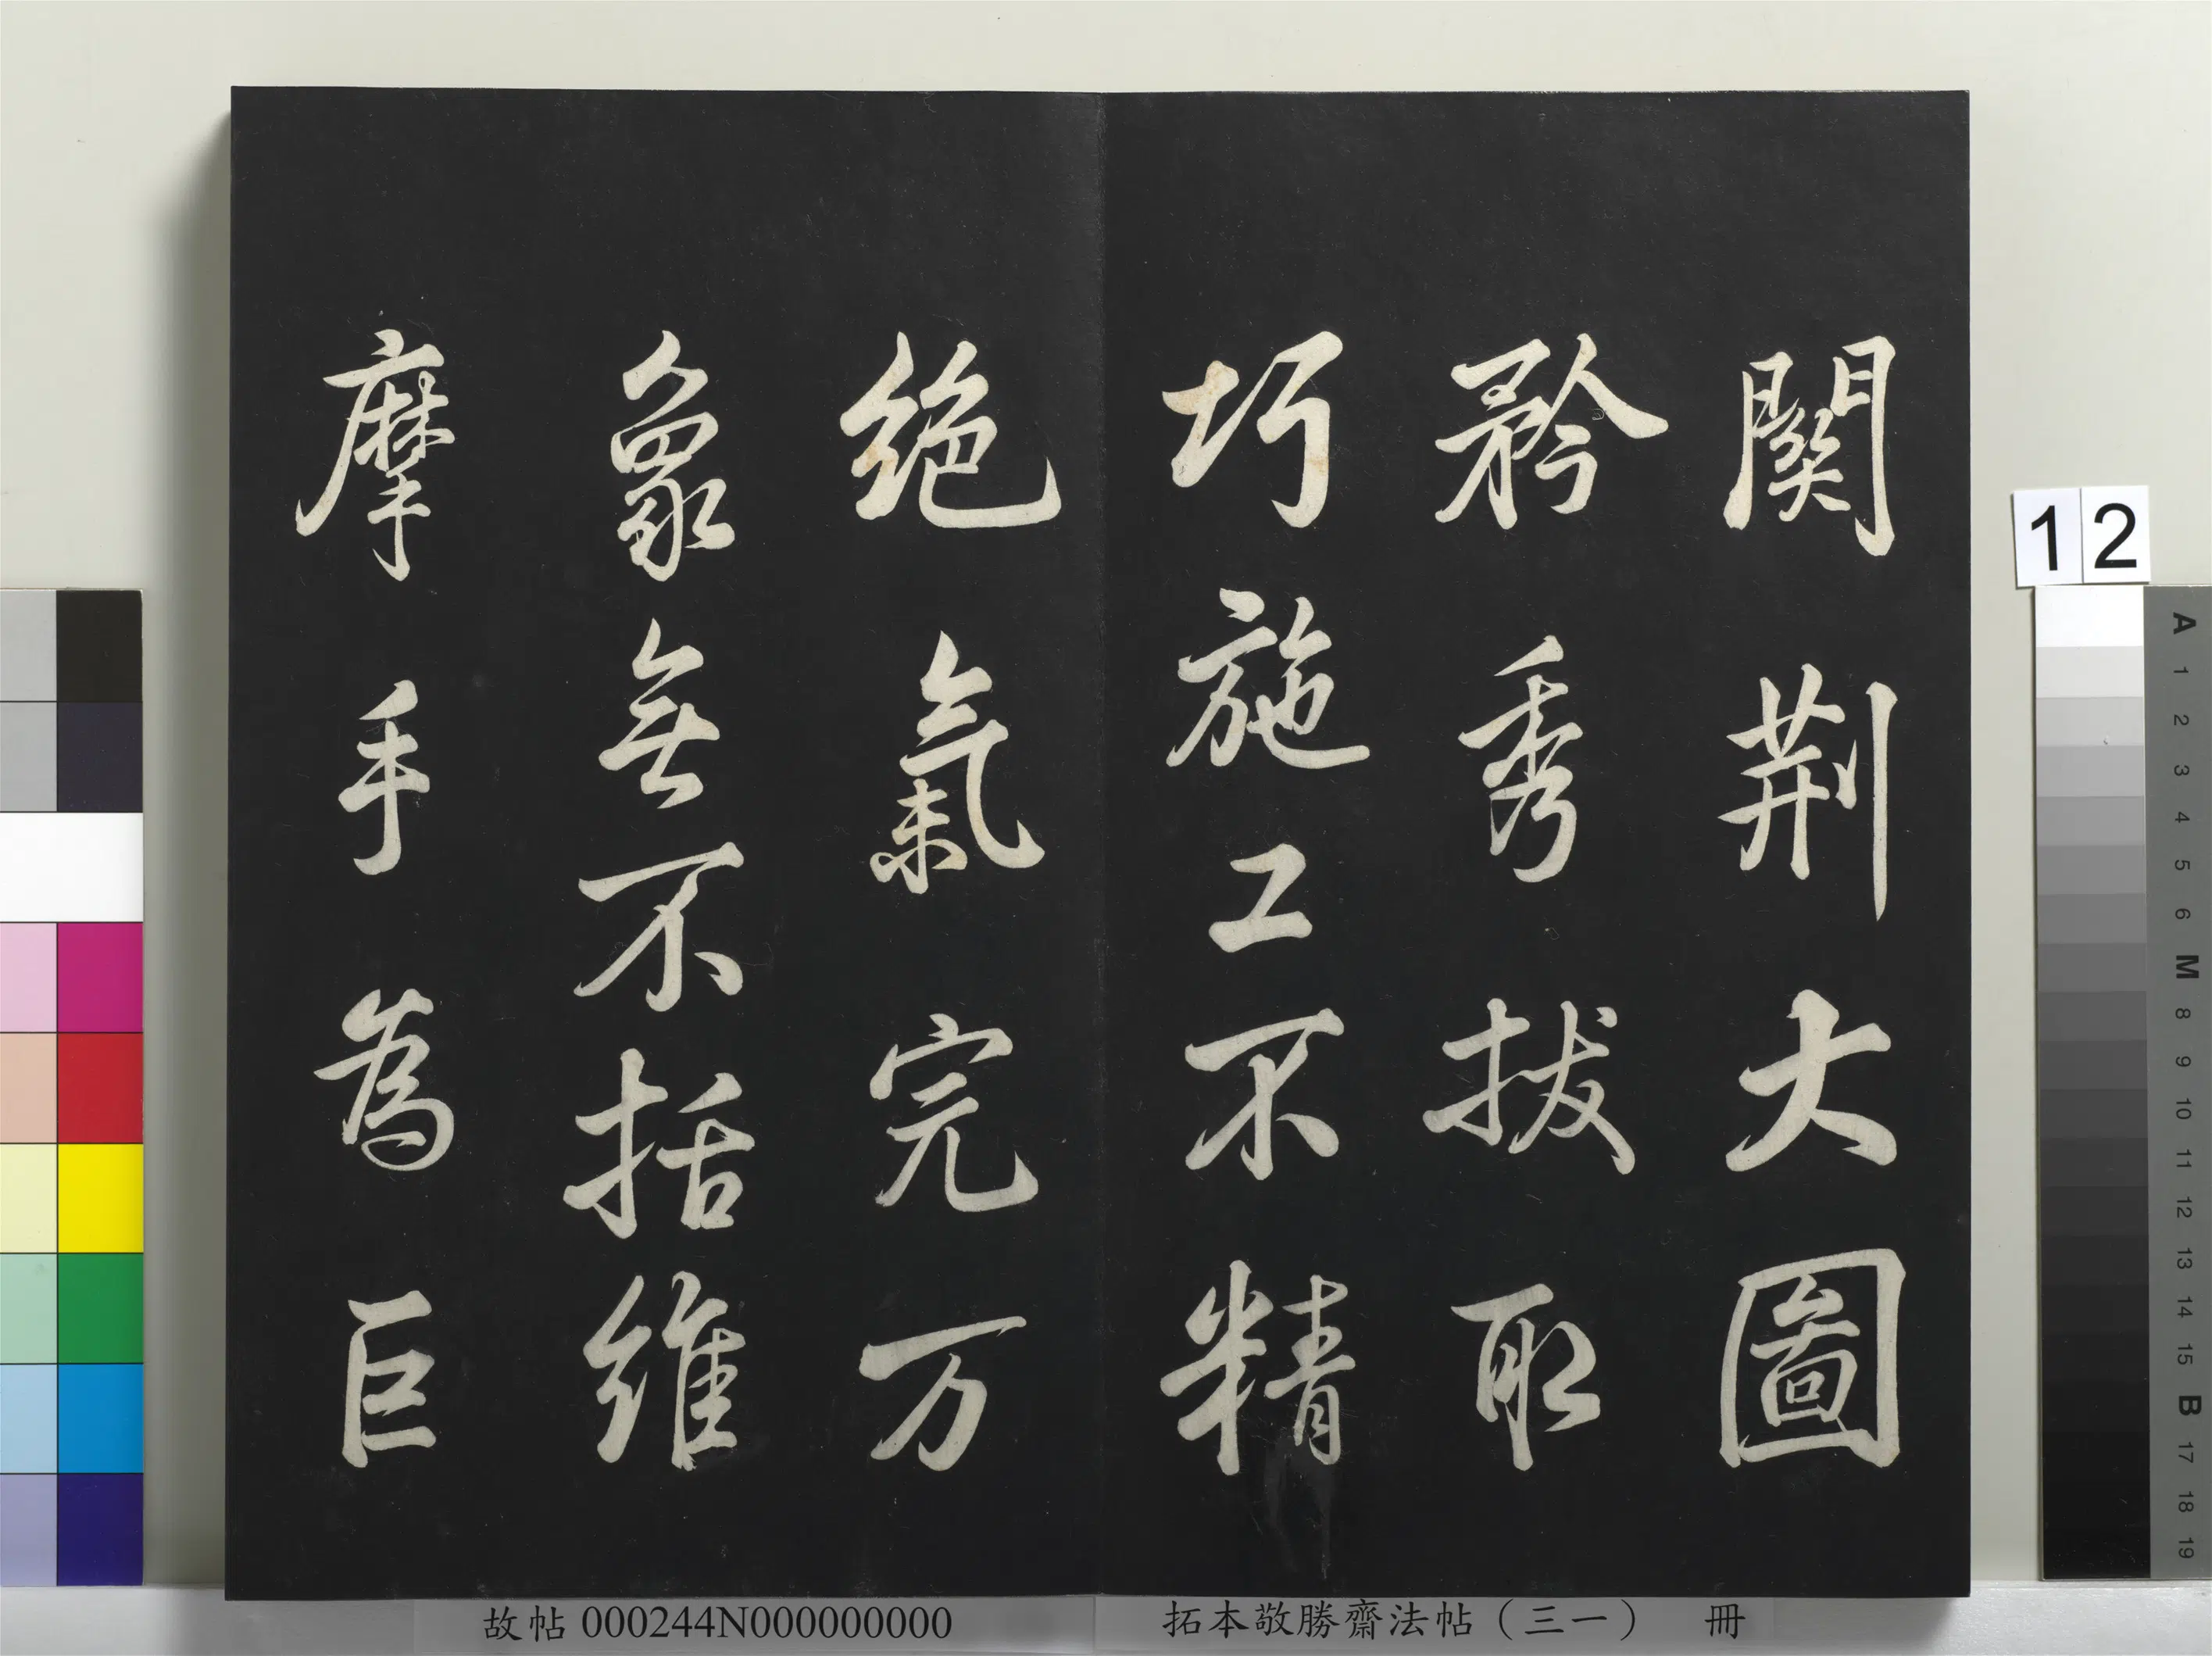 關荊大圖
矜秀拔取
巧施工不精
絕氣完万
象無不括維
摩手為巨
12
A 1 2 3 4 5 6 M 8 9 10 11 12 13 14 15 B 17 18 19
故帖 000244N000000000
拓本敬勝齋法帖（三一） 冊